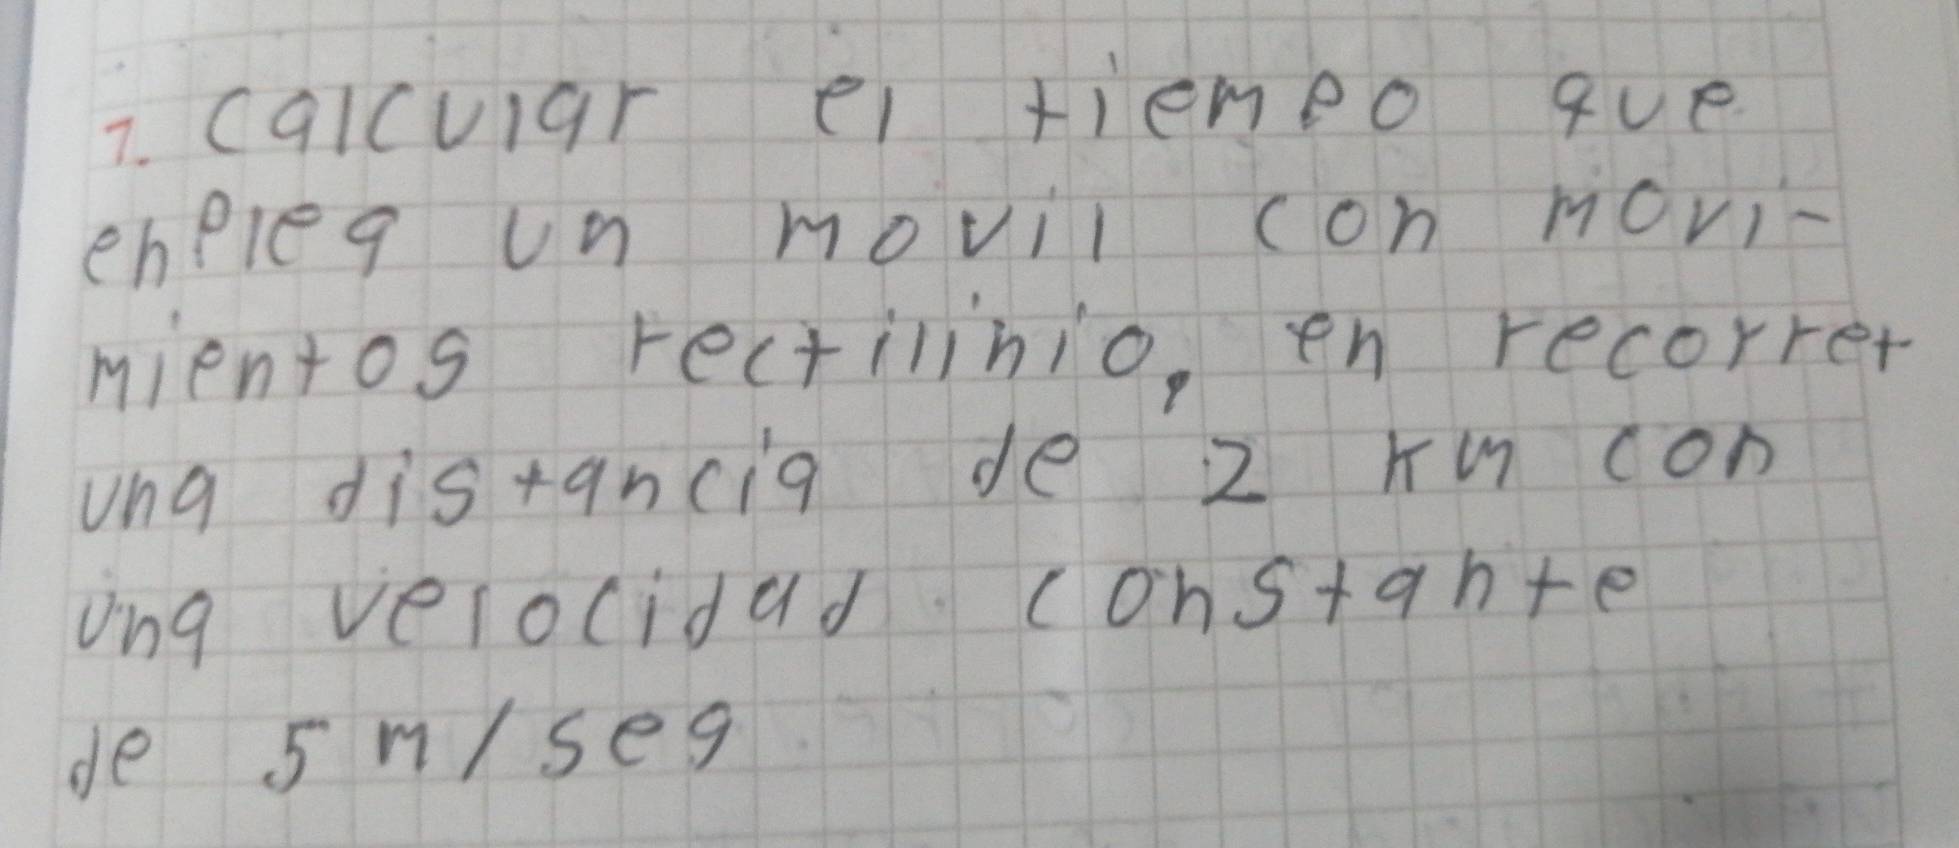 7. calcular el tiempo que
enplea un movil con movi-
mientos rectilinio, en recorrer
una distancia de 2 km con
una velocidad constante
de 5 m/seg